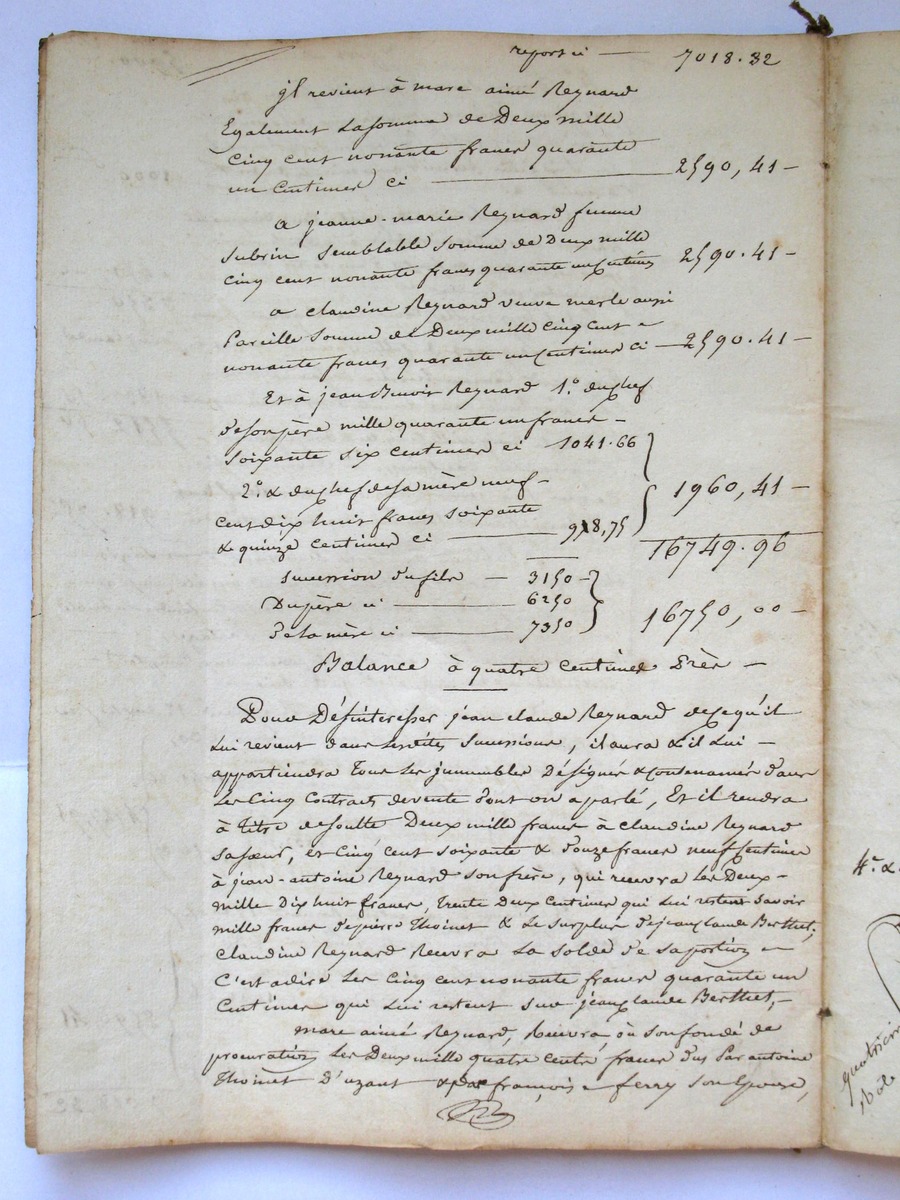 report ci — 7018.32
jl revient à marc aimé Reynard
Egalement la somme de Deux mille
Cinq cent nonante francs quarante
un Centimes ci — 2590,41 —
a jeanne-marie Reynard femme
subrin semblable somme de Deux mille
Cinq cent nonante francs quarante un Centimes 2590.41 —
a claudine Reynard veuve merle aussi
Pareille Somme de Deux mille Cinq Cent
nonante francs quarante un Centimes ci — 2590.41 —
Et à jean Benoit Reynard 1.o du chef
de son père mille quarante un francs
soixante six centimes ci 1041.66
2.o & du chef de sa mère neuf
cent dix huit francs soixante
& quinze centimes ci — 918,75
1960,41 —
16749.96
succession du fils — 3150 —
Du père ci — 6250
de la mère ci — 7350
16750,00 —
Balance à quatre Centimes Près —
Pour Désintéresser jean claude Reynard de ce qu'il
Lui revient dans les dites Successions, il aura & il Lui
appartiendra Tous Les immeubles Désignés & Contenamés dans
Les Cinq Contrats de vente dont on a parlé, Et il rendra
à Titre de soulte Deux mille francs à claudine Reynard
sa sœur, et Cinq cent soixante & douze francs neuf Centimes
à jean-antoine Reynard son frère, qui recevra Les Deux
mille Dix huit francs, trente Deux Centimes qui Lui restent savoir
mille francs de pierre Thoinet & Le surplus de jean claude Berthet;
claudine Reynard Recevra La solde de sa portion
C'est adire Les Cinq cent nonante francs quarante un
Centimes qui Lui restent sur jean claude Berthet, —
marc aimé Reynard, Recevra, où son fondé de
procuration Les Deux mille quatre cents francs dus Par antoine
Thoinet D'uzant & par françois ferry son Epouse,
4.o &
quatrieme
Role